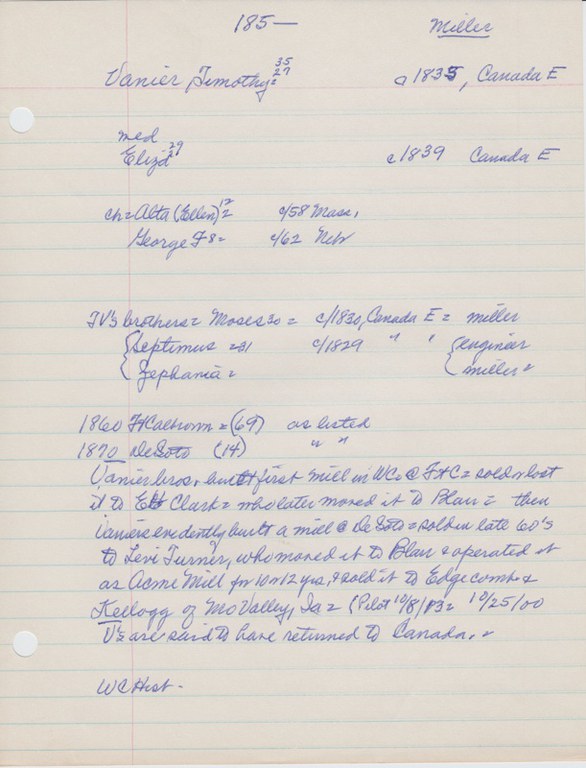 185— Miller
Vanier, Timothy = 35 27 c 1835, Canada E
med
Eliz'd 29 c 1839 Canada E
ch = Alta (Ellen) 12 = c/58 Mass.
George F 8 = c/62 Neb
TV's brothers = Moses 30 = c/1830, Canada E = miller
{ Septimus = 31 c/1829 " " { engineer
{ Zephania = { miller =
1860 Ft Calhoun = (69) as listed
1870 DeSoto (14) " "
Vanier bros. built first mill in WCo @ Ft C = sold or lost
it to EH Clark = who later moved it to Blair = then
Vaniers evidently built a mill @ DeSoto = sold in late 60's
to Levi Turner, who moved it to Blair & operated it
as Acme Mill for 10 or 12 yrs, & sold it to Edgecomb &
Kellogg of Mo Valley, Ia = (Pilot 10/8/03 = 10/25/00
V's are said to have returned to Canada. =
WC Hist -